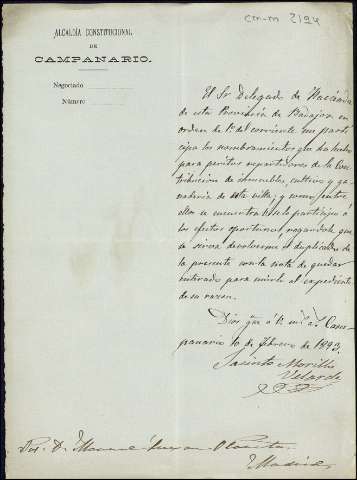 CM-M 2124
ALCALDÍA CONSTITUCIONAL
DE
CAMPANARIO.
Negociado
Número
El Sr Delegado de Hacienda
de esta Provincia de Badajoz en
orden de 1º del corriente me parti-
cipa los nombramientos que ha hecho
para peritos repartidores de la Con-
tribucion de inmuebles, cultivo y ga-
naderia de esta villa; y como entre
ellos se encuentra V. se lo participo á
los efectos oportunos, rogandole que
se sirva devolverme el duplicado de
la presente con la nota de quedar
enterado para unirlo al expediente
de su razon.
Dios gue á V. ms. as. Cam-
panario 10 de febrero de 1893.
Jacinto Morillo
Velarde
Sor. D. Manuel
Madrid